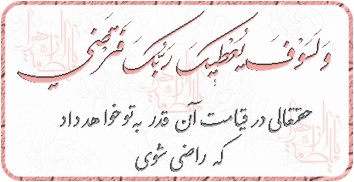 وَلَسَوْفَ یُعْطیکَ رَبُّکَ فَتَرْضیٰ
حقتعالی در قیامت آن قدر به تو خواهد داد
که راضی شوی